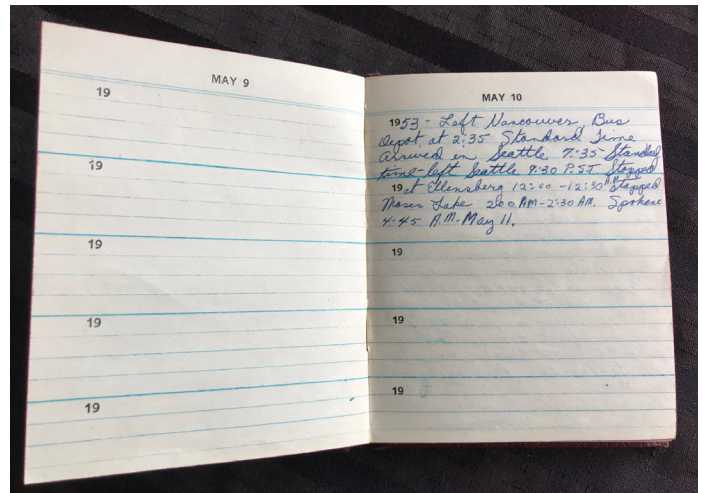 MAY 9
19
19
19
19
19
MAY 10
1953 - Left Vancouver, Bus
Depot at 2:35 Standard Time
arrived in Seattle 7:35 Standard
time - left Seattle 9:30 P.ST Stopped
19 at Ellensberg 12:00 - 12:30 A.M. Stopped
Moses Lake 2:00 AM - 2:30 AM. Spokane
4:45 A.M. May 11.
19
19
19